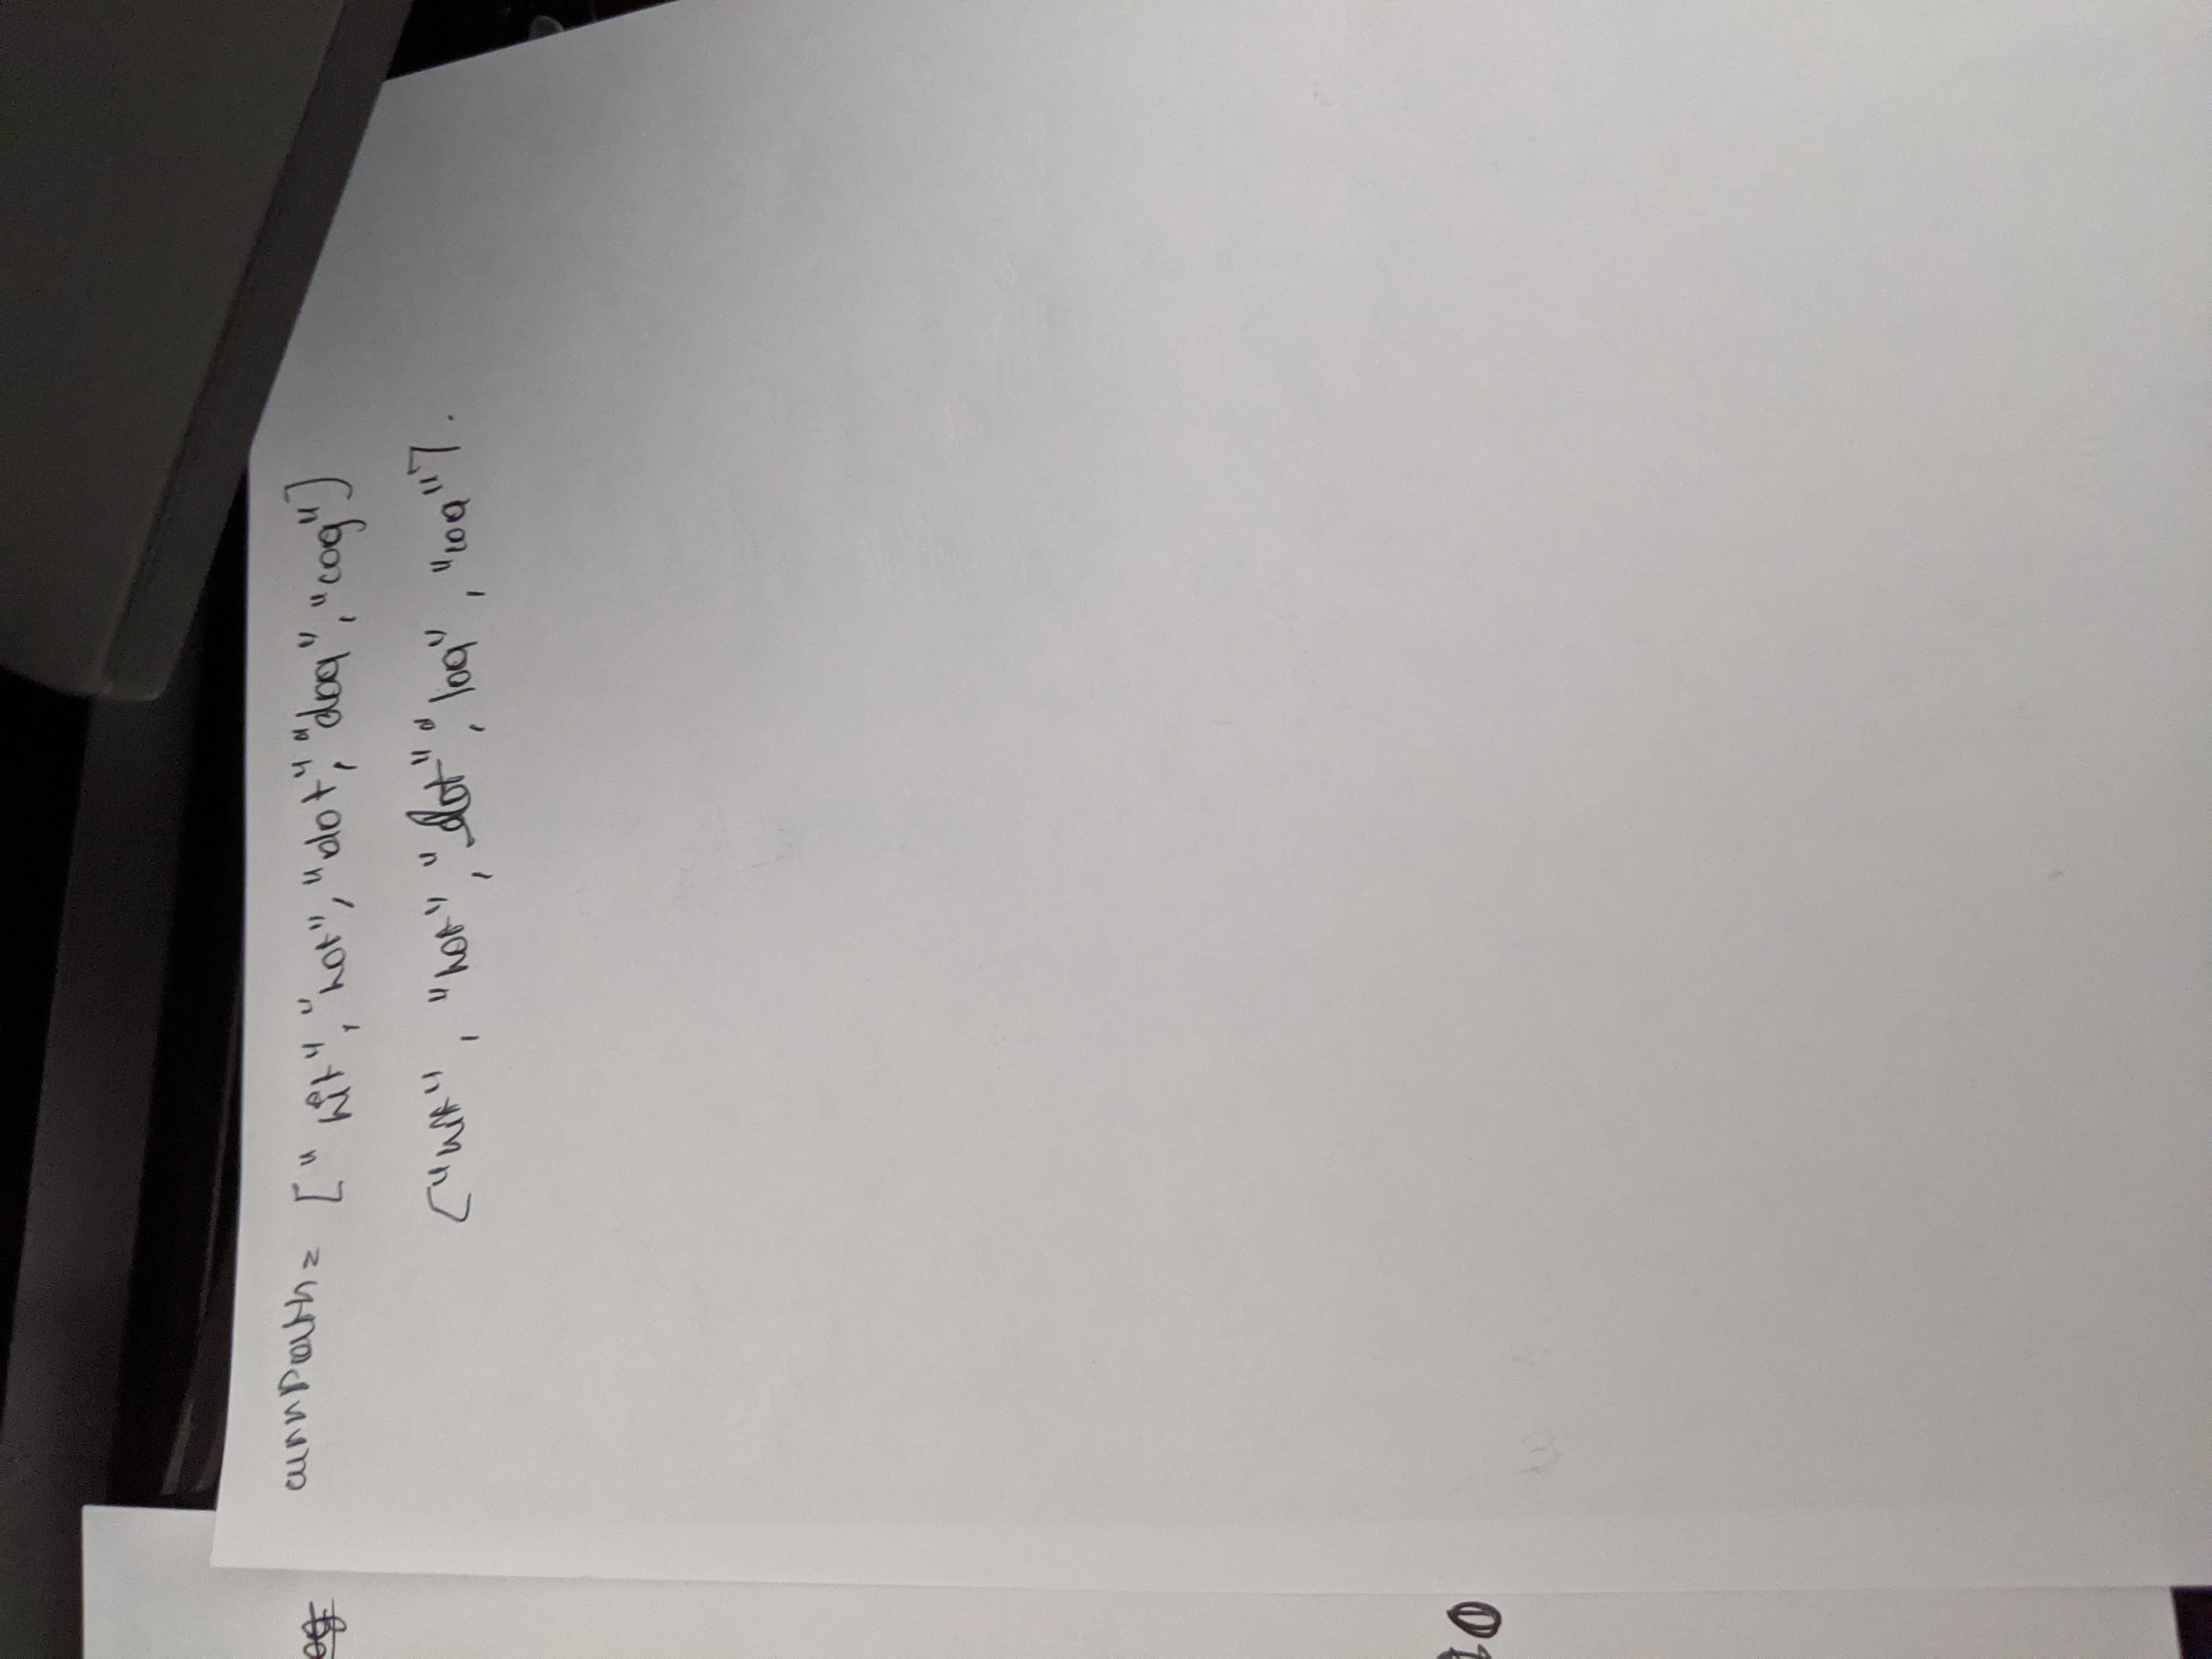 currPath = ["hit", "hot", "dot", "dog", "cog"]
["hit", "hot", "dot", "log", "cog"].
og
10